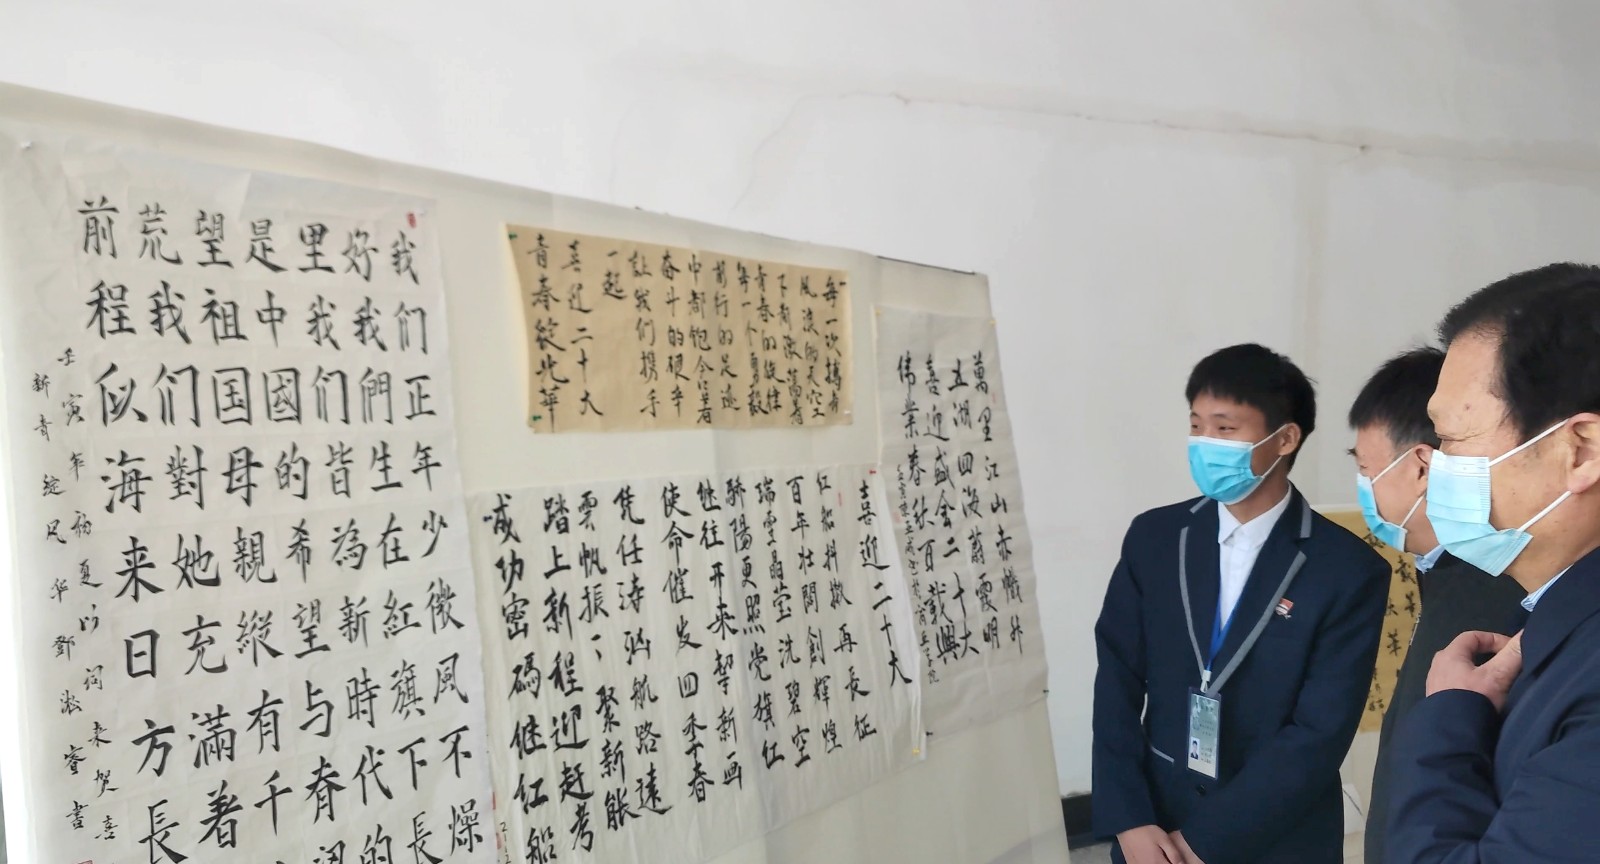 萬里江山赤幟升
五湖四海蔚霞明
喜迎盛会二十大
伟業春秋百載興
每一次搏击
风浪的天空
下都激荡着
青春的旋律
每一个勇毅
前行的足迹
中都饱含着
奋斗的艰辛
让我们携手
一起
喜迎二十大
青春绽光華
喜迎二十大
红船抖擞再長征
百年壮阔創輝煌
瑞雪晶莹洗碧空
骄陽更照党旗红
继往开来挈新画
使命催发四季春
凭任涛汹航路遠
雲帆振振聚新能
踏上新程迎赶考
成功密碼继红船
我们正年少微风不燥
好我們生在紅旗下長
里我们皆為新時代的
是中國的希望与脊
望祖国母親縱有千
荒我们對她充滿着
前程似海来日方長
壬寅年初夏以词来贺喜
新青绽风华鄧淞睿書